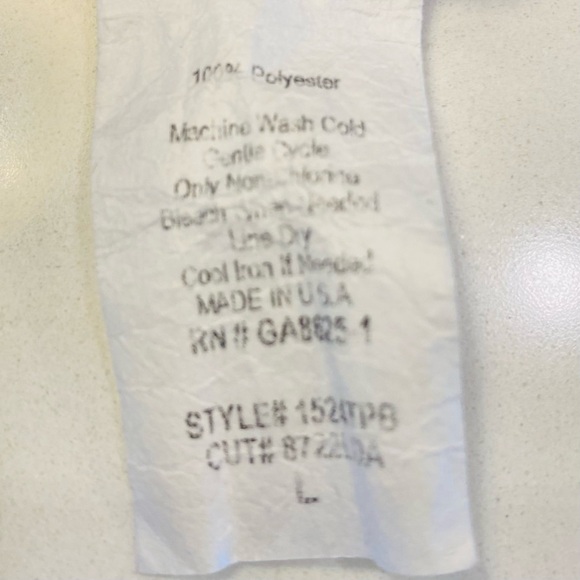 100% Polyester
Machine Wash Cold
Gentle Cycle
Only Non-Chlorine
Bleach When Needed
Line Dry
Cool Iron If Needed
MADE IN U.S.A
RN # GA8625-1
STYLE# 1520TPB
CUT#
L